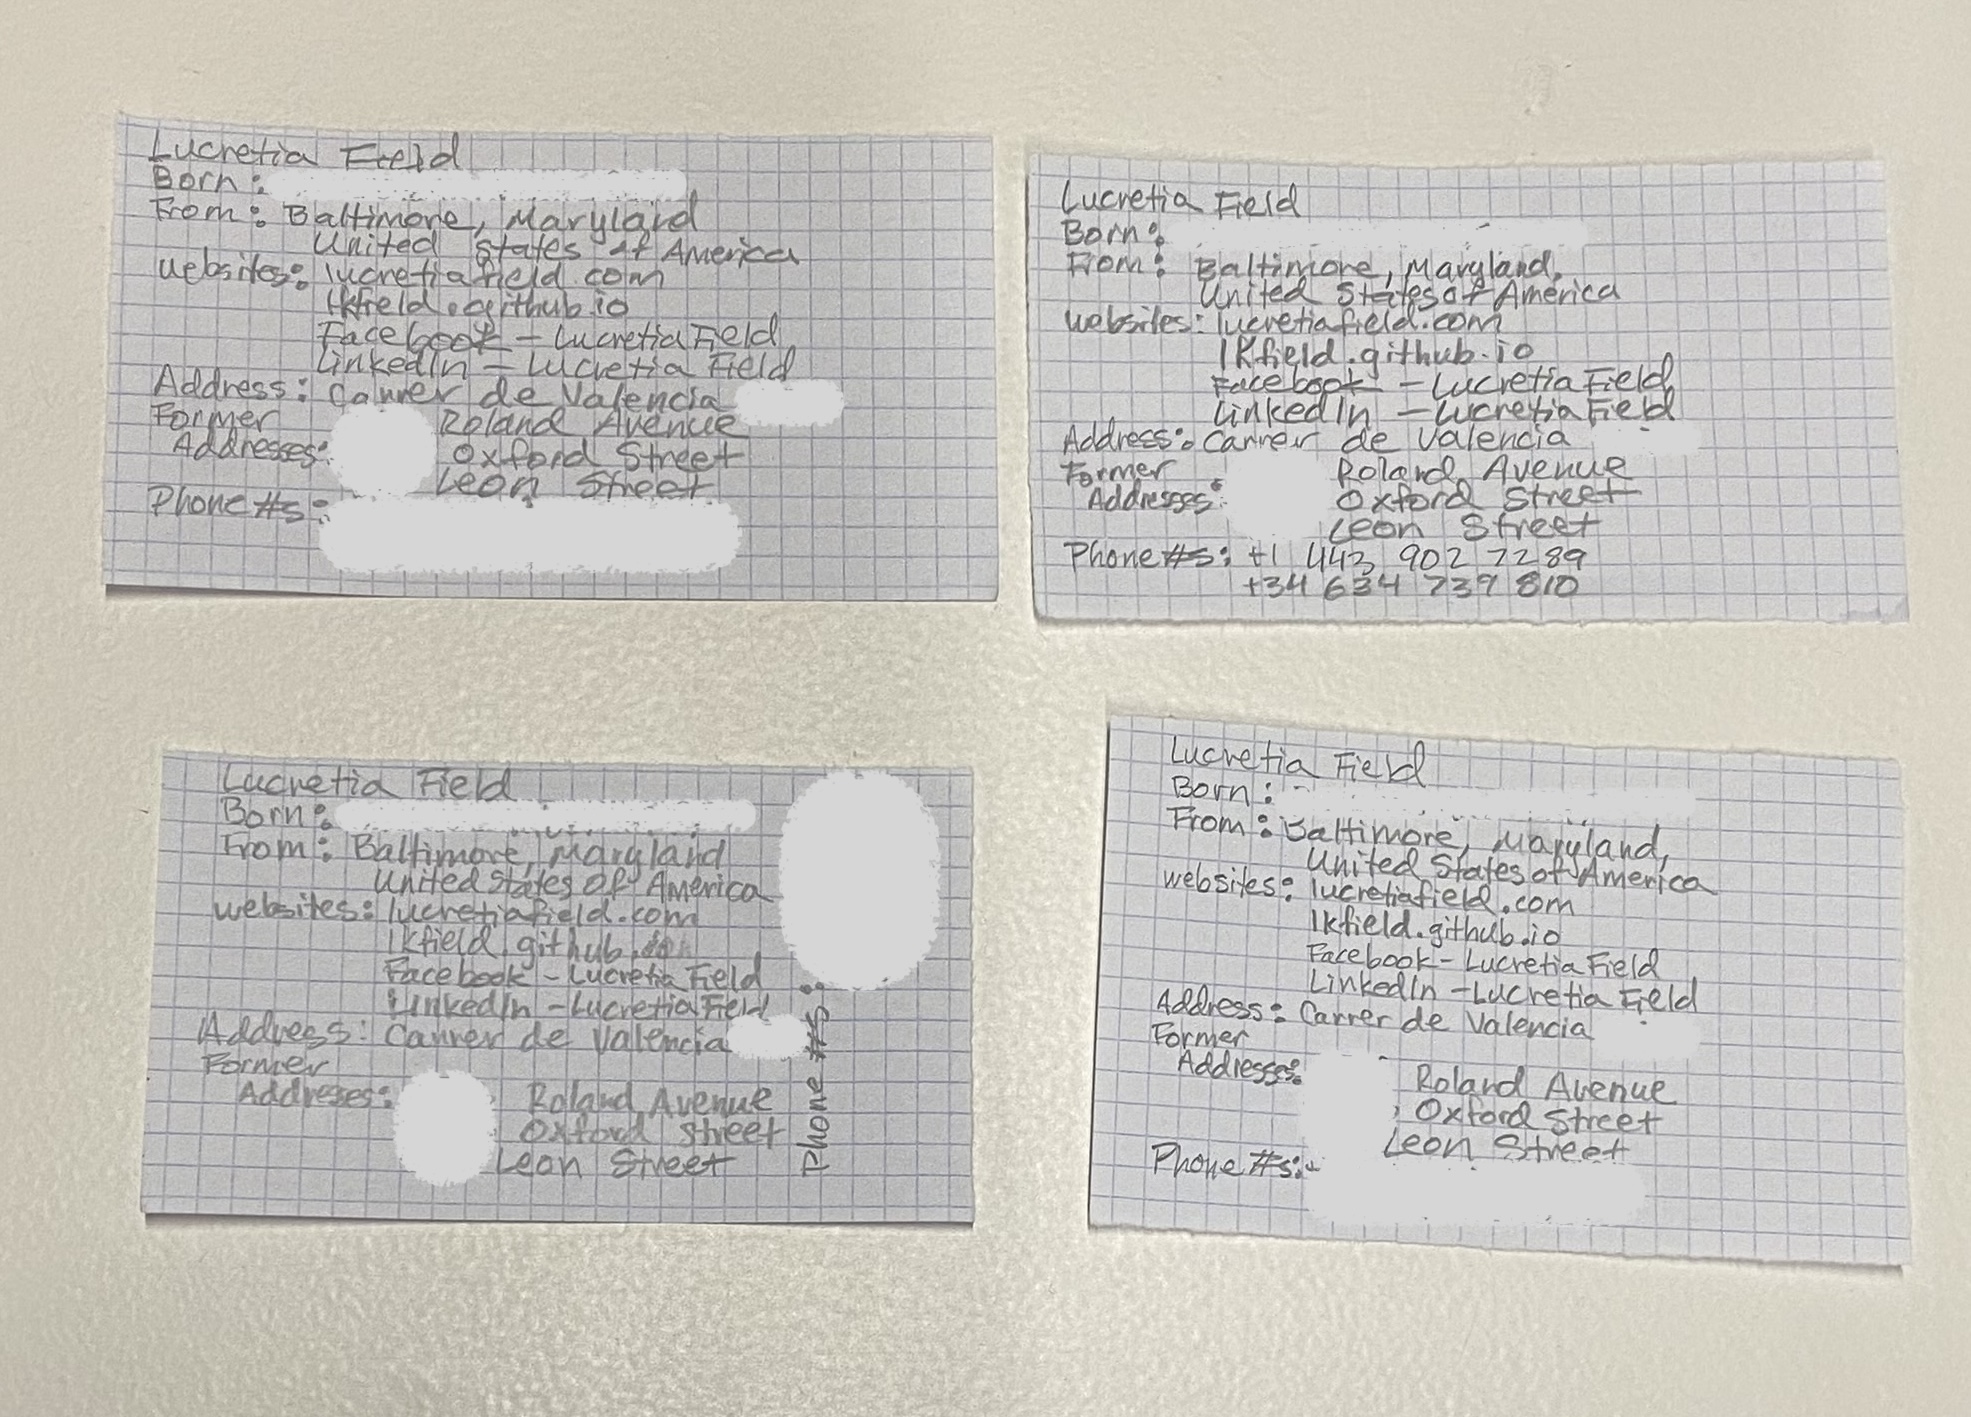 Lucretia Field
Born:
From: Baltimore, Maryland
United States of America
websites: lucretiafield.com
lkfield.github.io
Facebook - Lucretia Field
LinkedIn - Lucretia Field
Address: Carrer de Valencia
Former
Addresses: Roland Avenue
Oxford Street
Leon Street
Phone #s:
Lucretia Field
Born:
From: Baltimore, Maryland,
United States of America
websites: lucretiafield.com
lkfield.github.io
Facebook - Lucretia Field
LinkedIn - Lucretia Field
Address: Carrer de Valencia
Former
Addresses: Roland Avenue
Oxford Street
Leon Street
Phone #s: +1 443 902 7289
+34 634 739 810
Lucretia Field
Born:
From: Baltimore, Maryland
United States of America
websites: lucretiafield.com
lkfield.github.
Facebook - Lucretia Field
LinkedIn - Lucretia Field
Address: Carrer de Valencia
Former
Addresses: Roland Avenue
Oxford Street
Leon Street
Phone #s:
Lucretia Field
Born:
From: Baltimore, Maryland,
United States of America
websites: lucretiafield.com
lkfield.github.io
Facebook - Lucretia Field
LinkedIn - Lucretia Field
Address: Carrer de Valencia
Former
Addresses: Roland Avenue
Oxford Street
Leon Street
Phone #s: